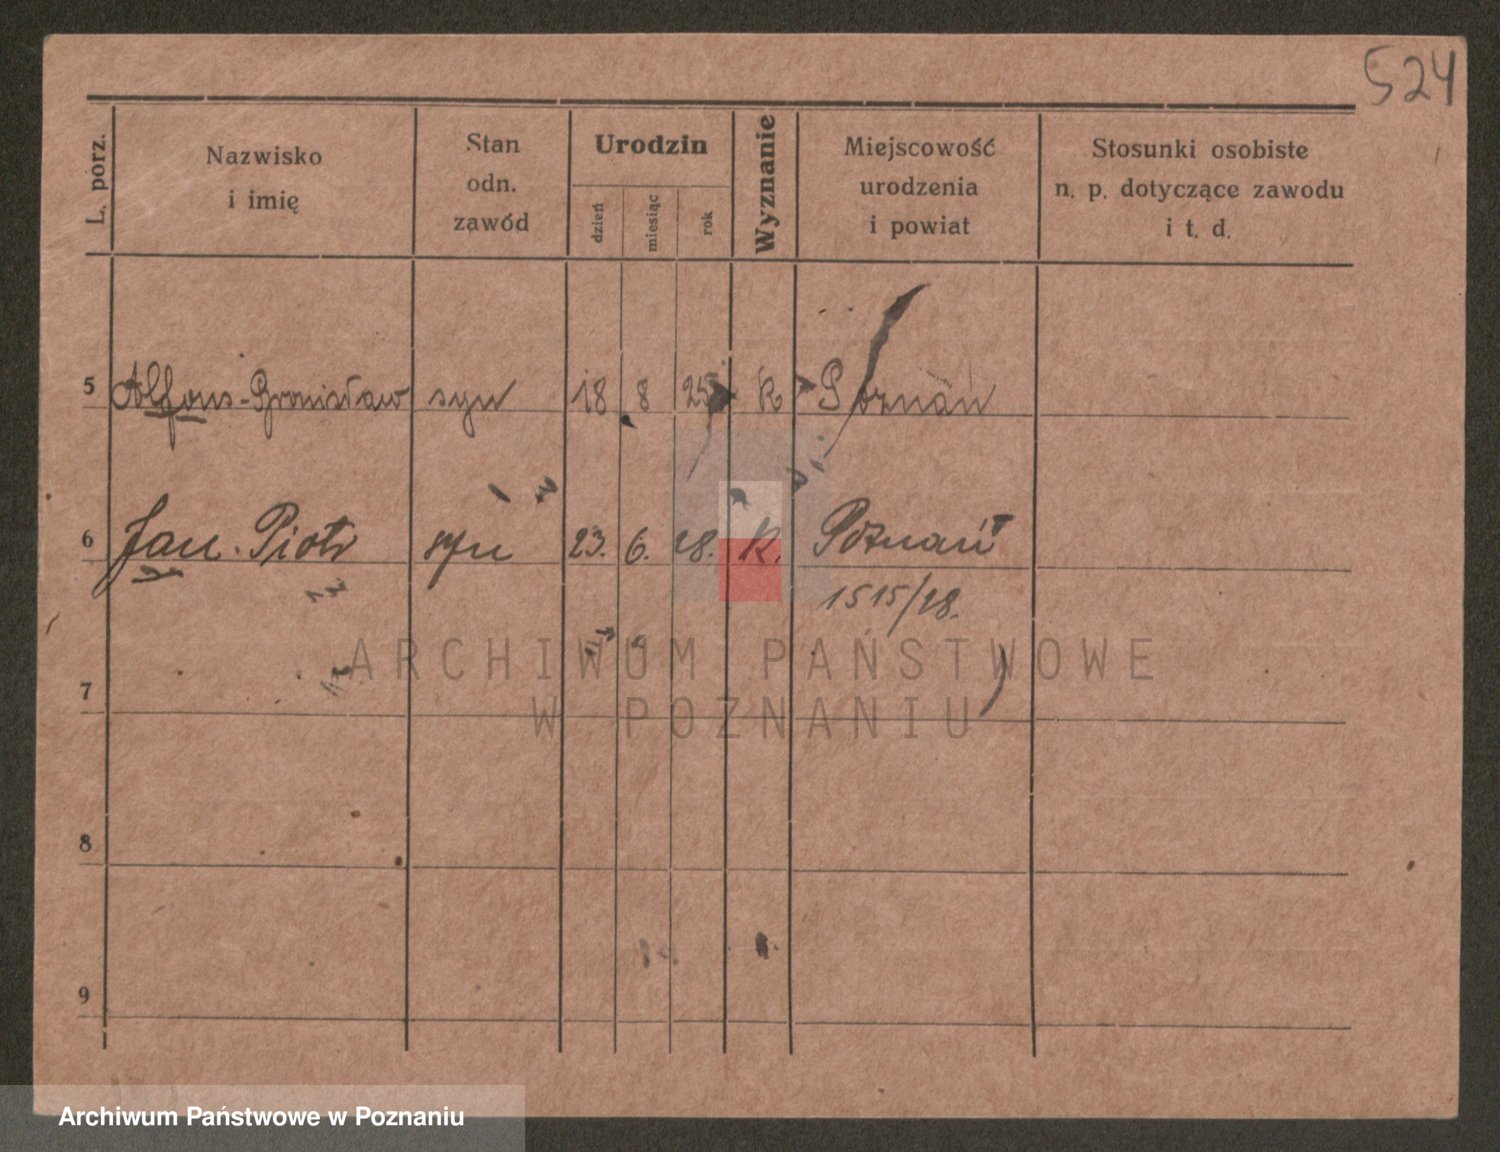 524
L. porz.
Nazwisko
i imię
Stan
odn.
zawód
Urodzin
dzień
miesiąc
rok
Wyznanie
Miejscowość
urodzenia
i powiat
Stosunki osobiste
n. p. dotyczące zawodu
i t. d.
5 Alfons-Bronisław syn 18 8 25 k Poznań
6 Jan Piotr syn 23. 6. 28. k. Poznań
1515/28.
7
8
9
ARCHIWUM PAŃSTWOWE
W POZNANIU
Archiwum Państwowe w Poznaniu